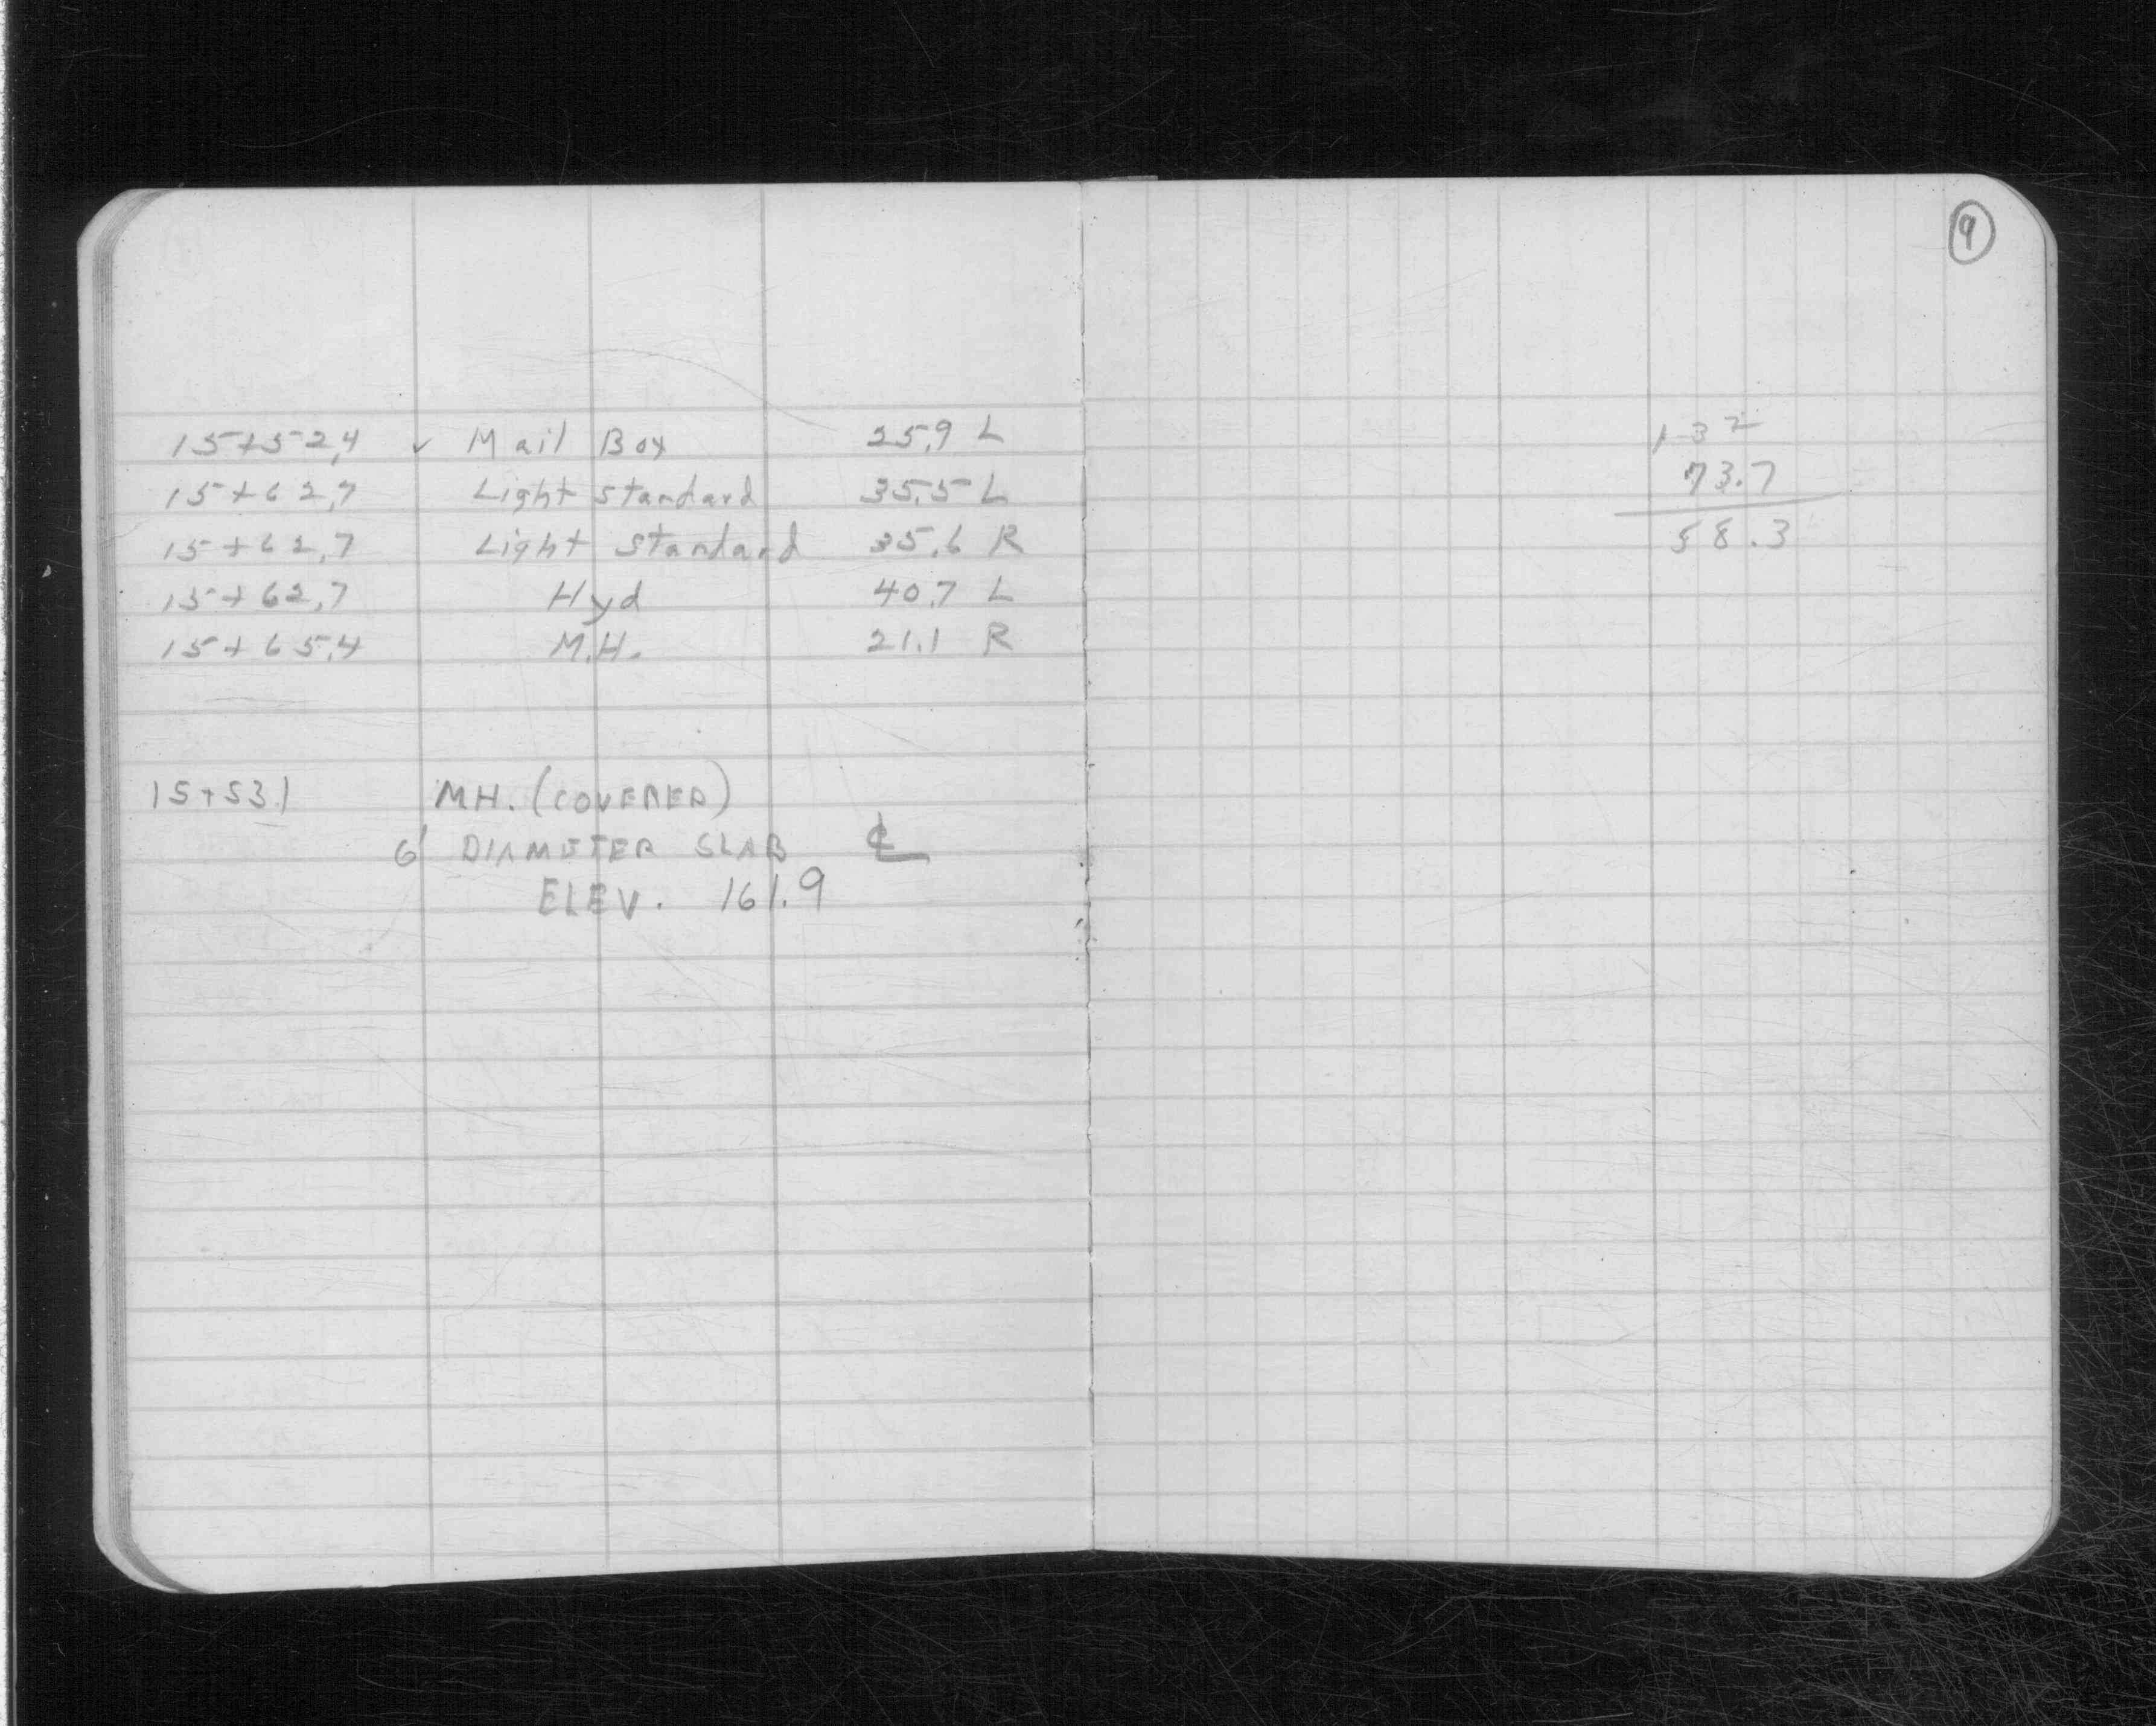 15+52.4 ✓ Mail Box 25.9 L
15+62.7 Light Standard 35.5 L
15+62.7 Light Standard 35.6 R
15+62.7 Hyd 40.7 L
15+65.4 M.H. 21.1 R
15+53.1 MH. (COVERED)
6' DIAMETER SLAB ℄
ELEV. 161.9
9
132
73.7
58.3